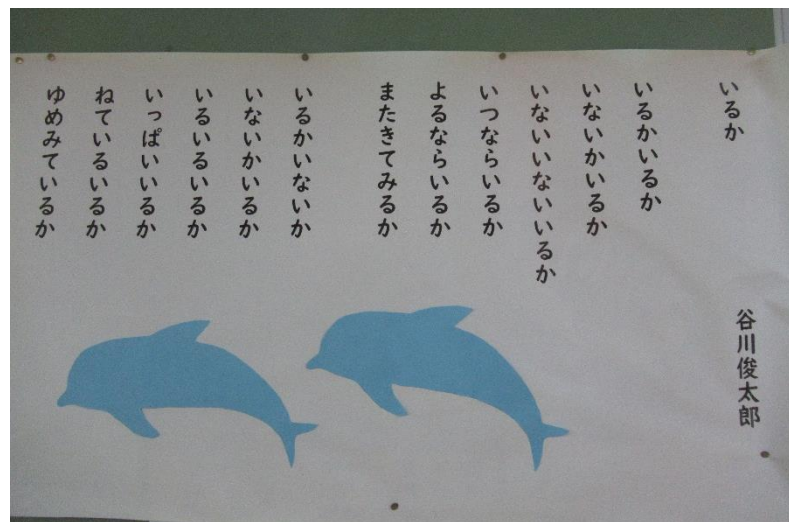 いるか
谷川俊太郎
いるかいるか
いないかいるか
いないいないいるか
いつならいるか
よるならいるか
またきてみるか
いるかいないか
いないかいるか
いるいるいるか
いっぱいいるか
ねているいるか
ゆめみているか